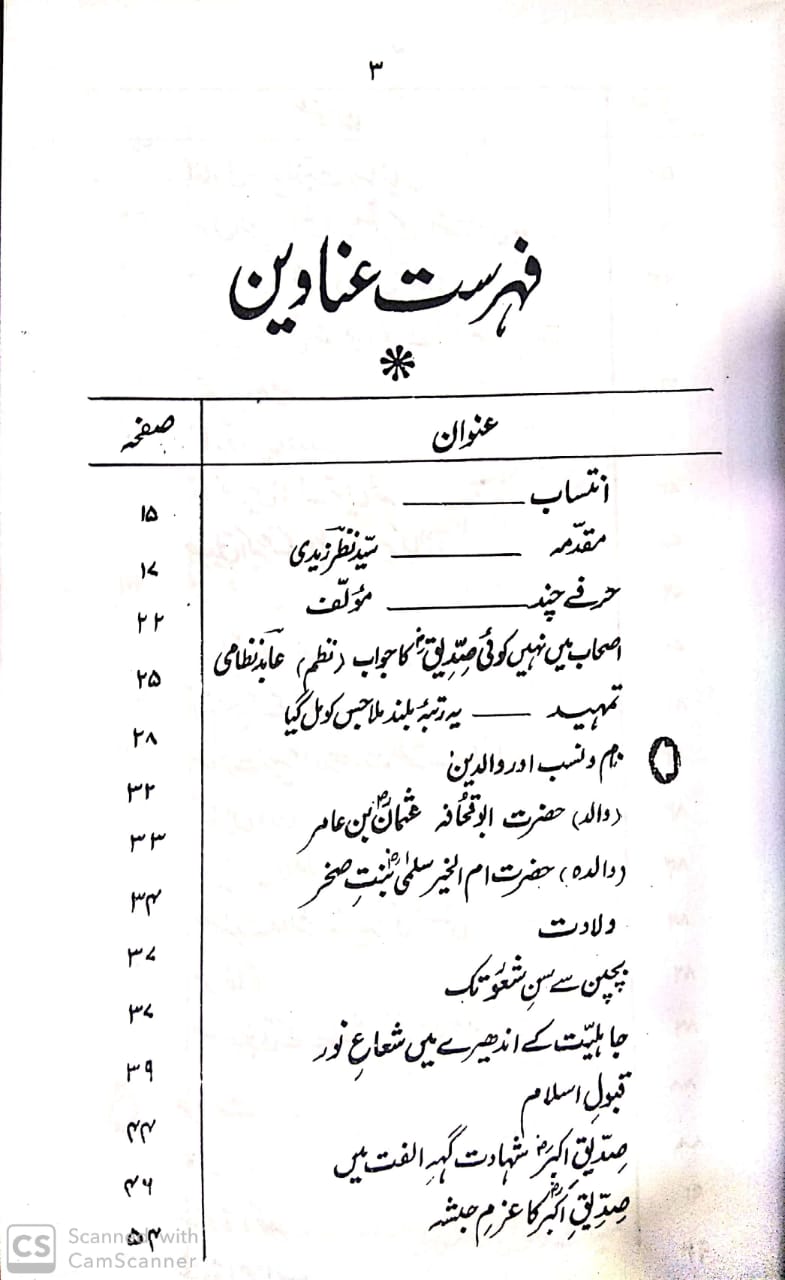 ۳
فہرست عناوین
عنوان صفحہ
انتساب ۱۵
مقدّمہ سیّد نظرؔ زیدی ۱۷
حرفے چند مؤلّف ۲۲
اصحاب میں نہیں کوئی صِدّیقؓ کا جواب (نظم) عابدؔ نظامی ۲۵
تمہید یہ رتبۂ بلند ملا جس کو مل گیا ۲۸
نام و نسب اور والدین ۳۲
(والد) حضرت ابو قحافہ عثمانؓ بن عامر ۳۳
(والدہ) حضرت ام الخیر سلمیٰؓ بنتِ صخر ۳۴
ولادت ۳۷
بچپن سے سنِ شعور تک ۳۷
جاہلیّت کے اندھیرے میں شعاعِ نور ۳۹
قبولِ اسلام ۴۴
صِدّیقِ اکبرؓ شہادت گہہِ الفت میں ۴۶
صِدّیقِ اکبرؓ کا عزمِ حبشہ ۵۴
CS Scanned with
CamScanner